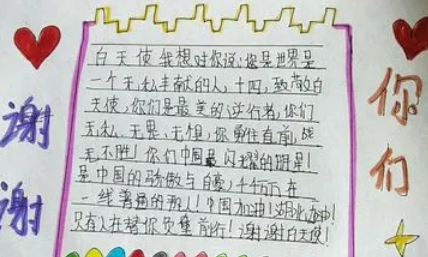 谢谢
你们
白天使我想对你说:您是世界是
一个无私丰献的人,十四、致敬白
天使,你们是最美的逆行者,你们
无私、无畏、无惧,你勇往直前,战
无不胜!你们中国最闪耀的明星!
是中国的骄傲与自豪,千千万万在
一线普通的
人!中国加油!湖北加油!
只有人在替你负重前行!谢谢白天使!